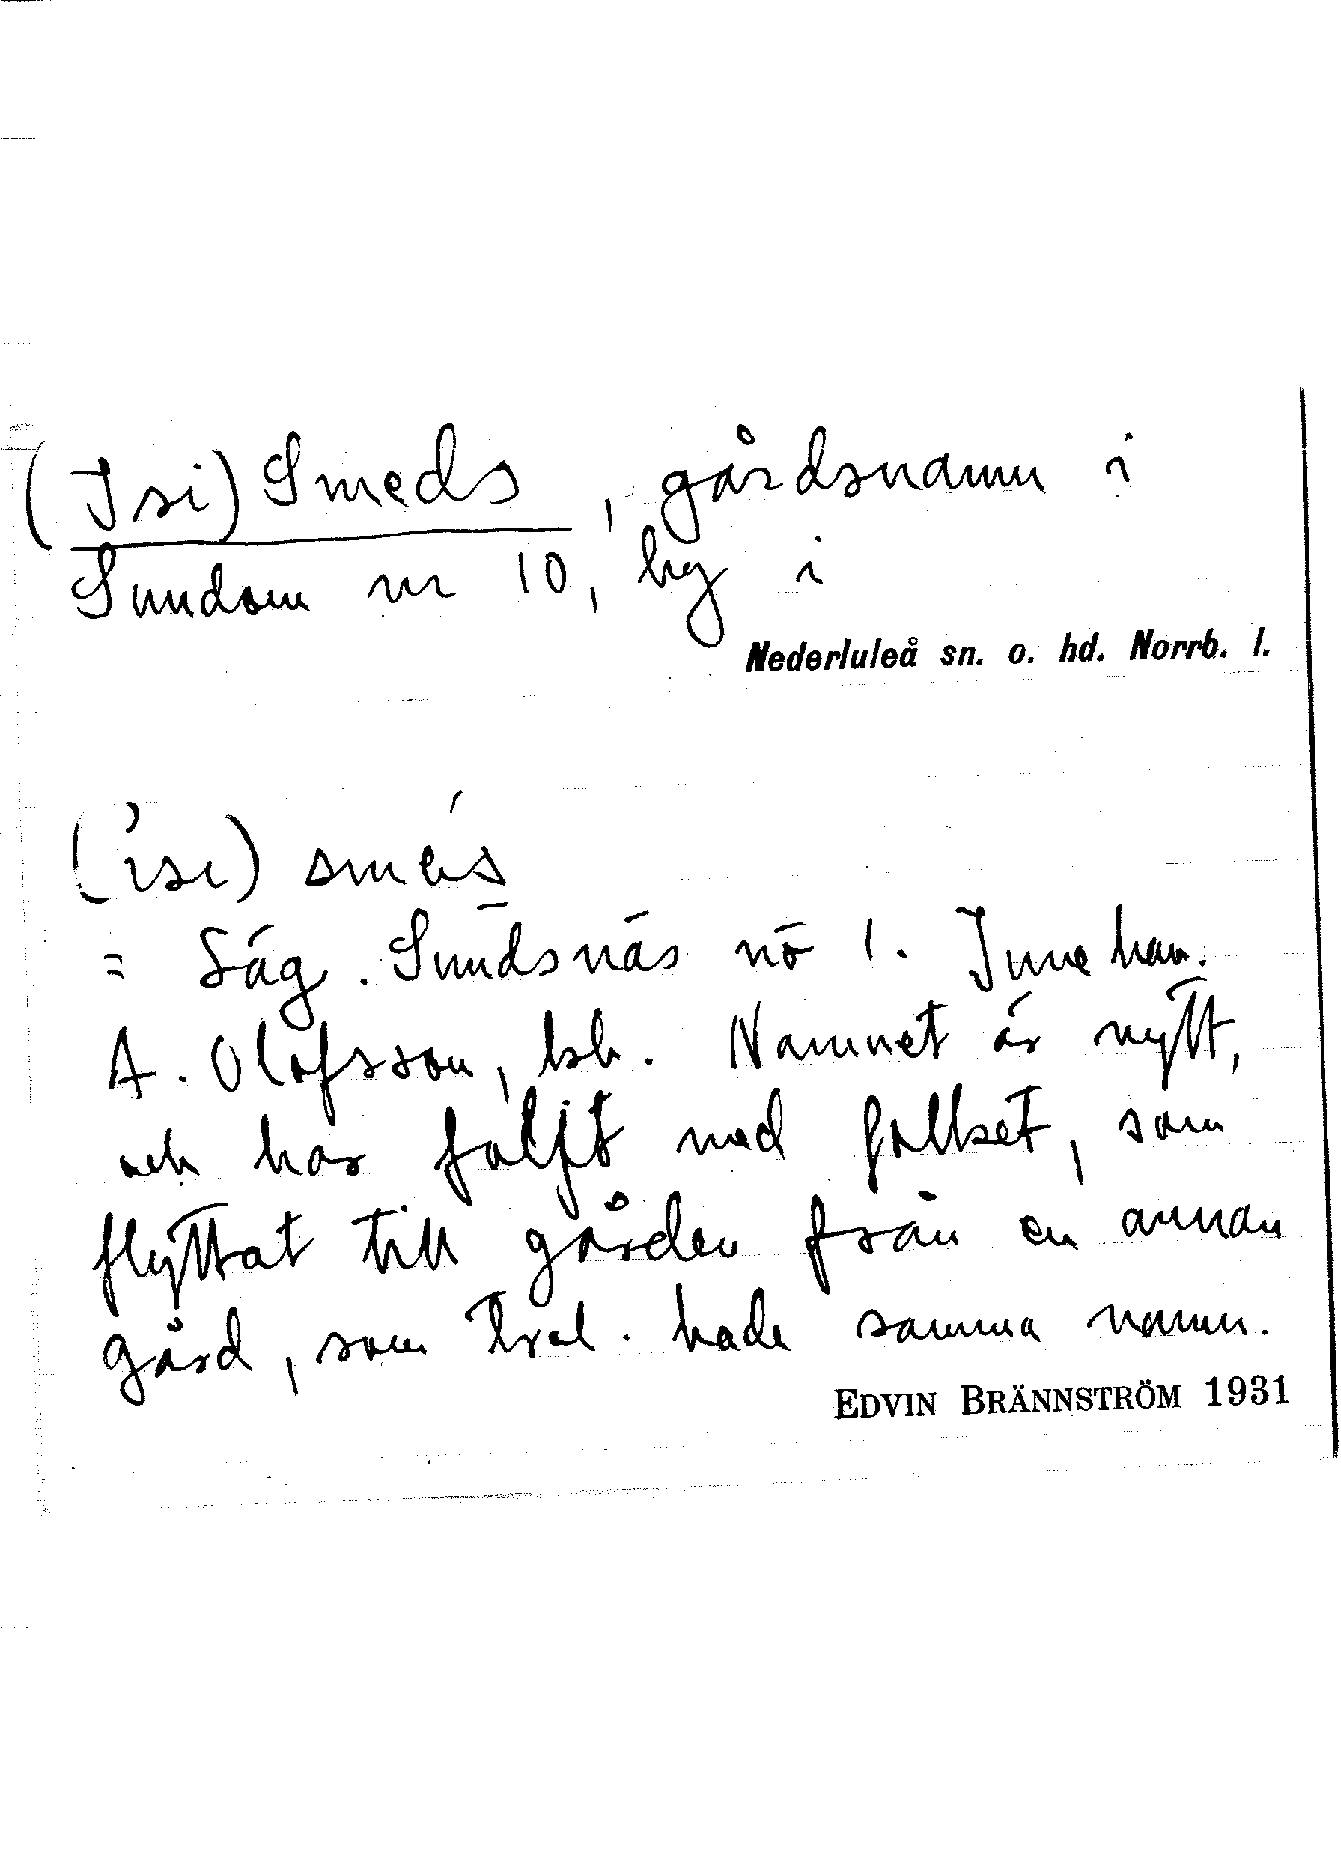 (Isi) Smeds, gårdsnamn i
Sundom nr 10, by i
Nederluleå sn. o. hd. Norrb. l.
= Säg. Sundsnäs nö 1. Innehav.
A. Olofsson, lsb. Namnet är nytt,
och har följt med folket, som
flyttat till gården från en annan
gård, som trol. hade samma namn.
EDVIN BRÄNNSTRÖM 1931